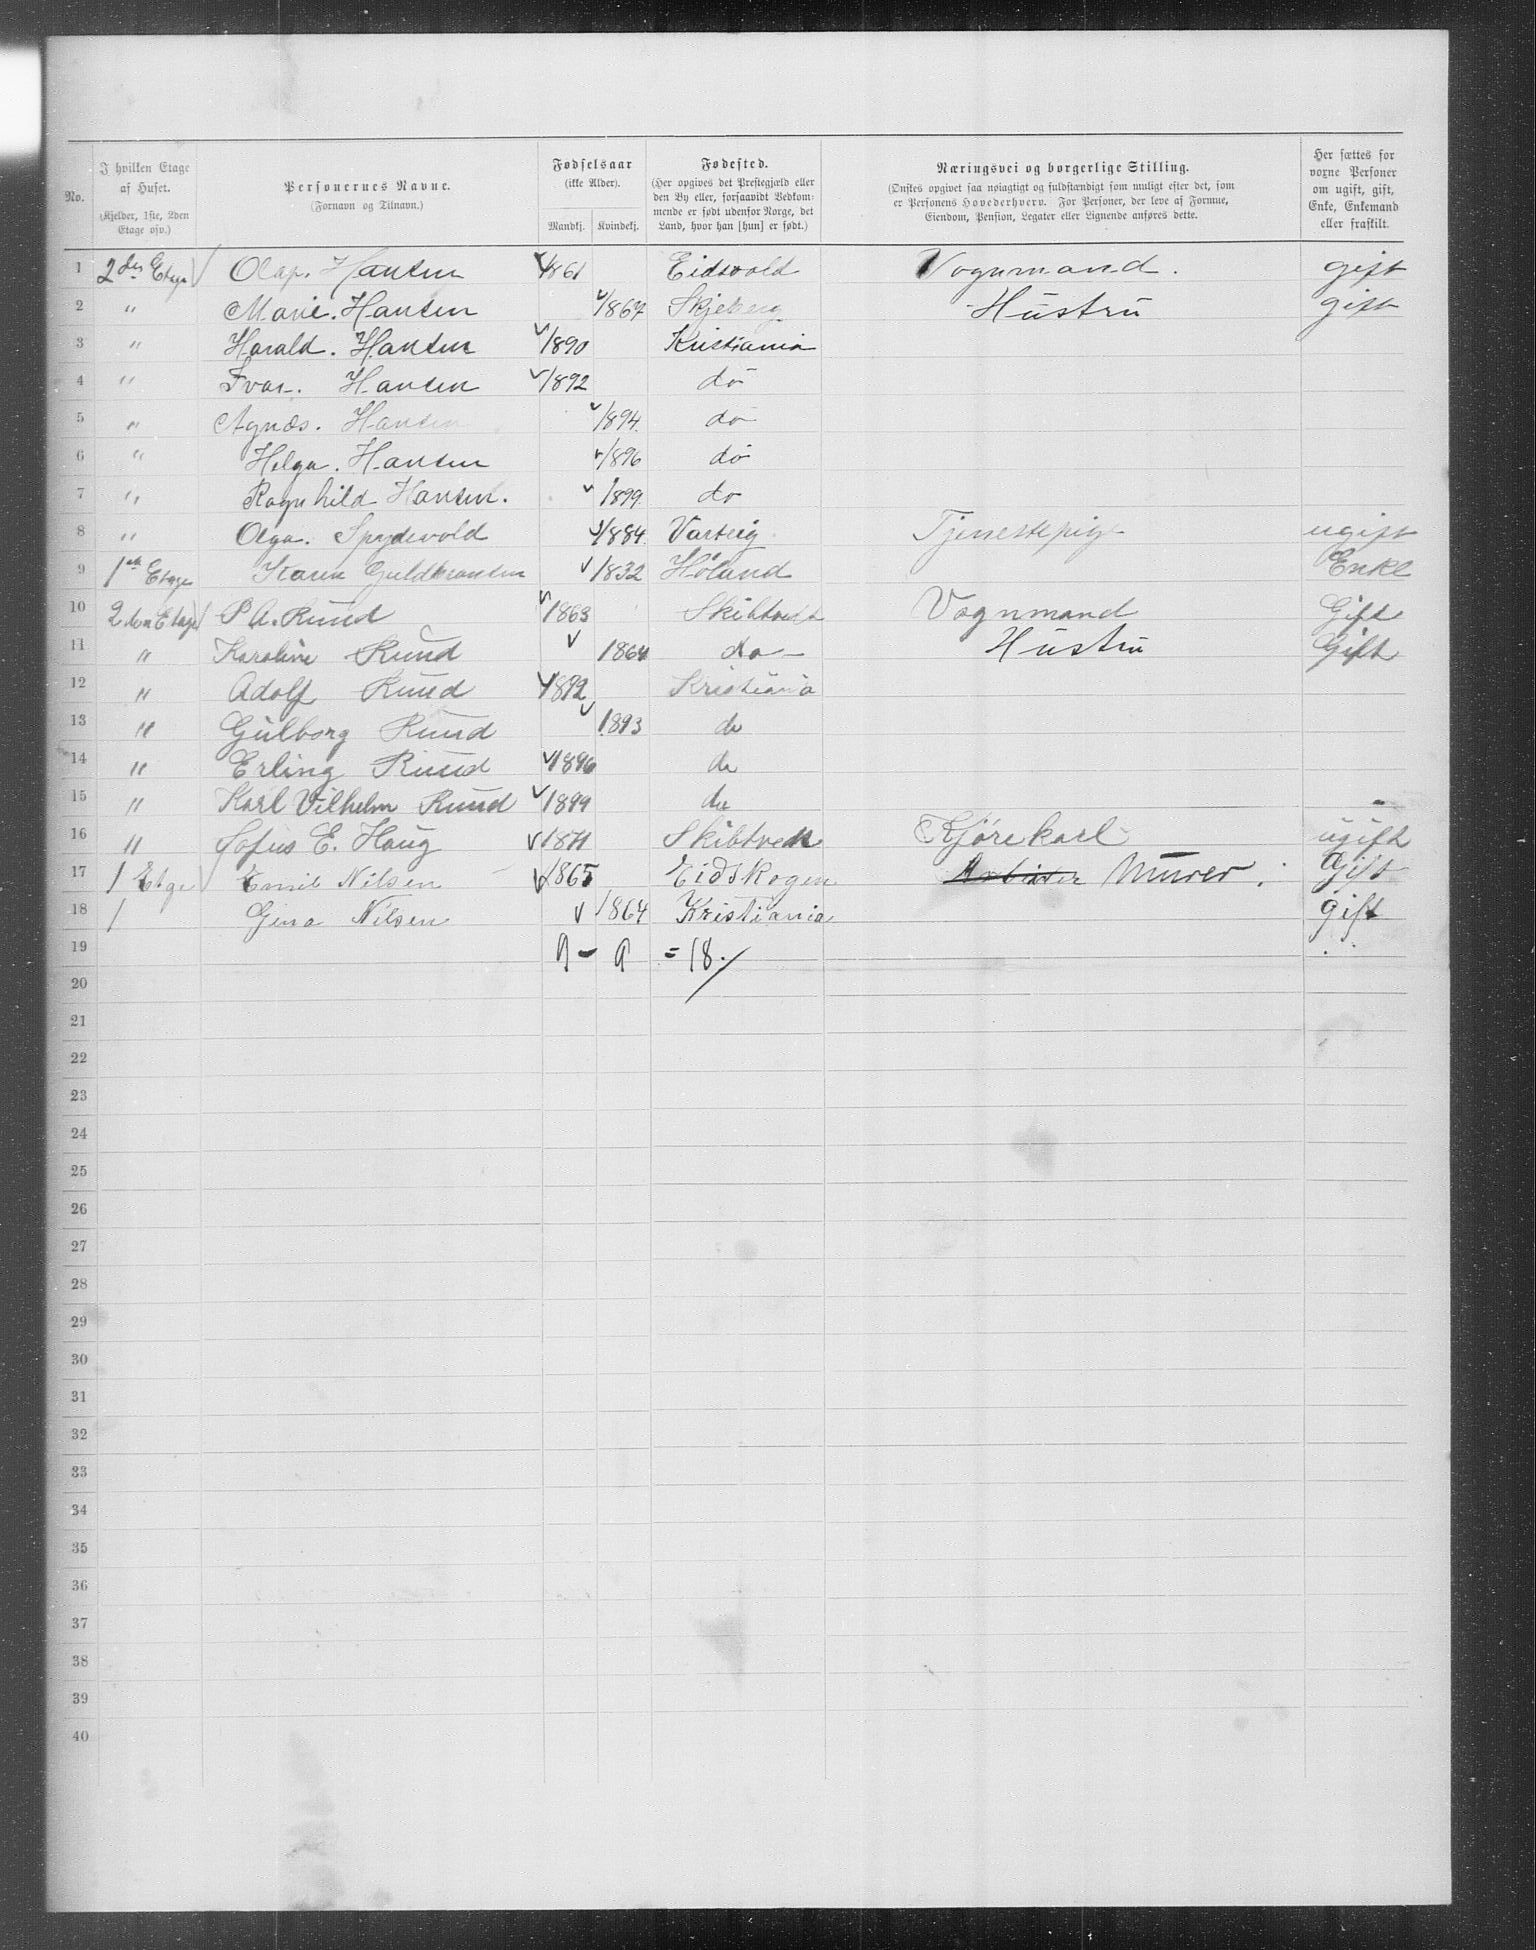 No. | I hvilken Etage af Huset. (Kjelder, 1ste, 2den Etage osv.) | Personernes Navne. (Fornavn og Tilnavn.) | Fødselsaar (ikke Alder). Mandkj. | Kvindekj. | Fødested. (Her opgives det Prestegjæld eller den By eller, forsaavidt Vedkommende er født udenfor Norge, det Land, hvor han [hun] er født.) | Næringsvei og borgerlige Stilling. (Ønskes opgivet saa nøiagtigt og fuldstændigt som muligt efter det, som er Personens Hovederhverv. For Personer, der leve af Formue, Eiendom, Pension, Legater eller Lignende anføres dette. | Her sættes for voxne Personer om ugift, gift, Enke, Enkemand eller fraskilt.
1 2den Etage Olaf. Hansen 1861 Eidsvold Vognmand. gift
2 " Marie. Hansen 1867 Skjeberg Hustru gift
3 " Harald. Hansen 1890 Kristiania
4 " Ivar. Hansen 1892 do
5 " Agnes. Hansen 1894. do
6 " Helga. Hansen 1896 do
7 " Ragnhild Hansen. 1899. do
8 " Olga. Spydevold 1884. Varteig Tjenestepige ugift
9 1ste Etage Karen Guldbransen 1832 Høland Enke
10 2den Etage P A. Ruud 1863 Skibtvedt Vognmand Gift
11 " Karoline Ruud 1864 do Hustru Gift
12 " Adolf Ruud 1892 Kristiania
13 " Gulborg Ruud 1893 do
14 " Erling Ruud 1896 do
15 " Karl Vilhelm Ruud 1899 do
16 " Sofus E. Haug 1871 Skibtvedt Kjørekarl ugift
17 1 Etge Emil Nilsen 1865 Eidskogen Arbeider Murer. Gift
18 1 Gina Nilsen 1864 Kristiania gift
19 9 - 9 = 18.
20
21
22
23
24
25
26
27
28
29
30
31
32
33
34
35
36
37
38
39
40